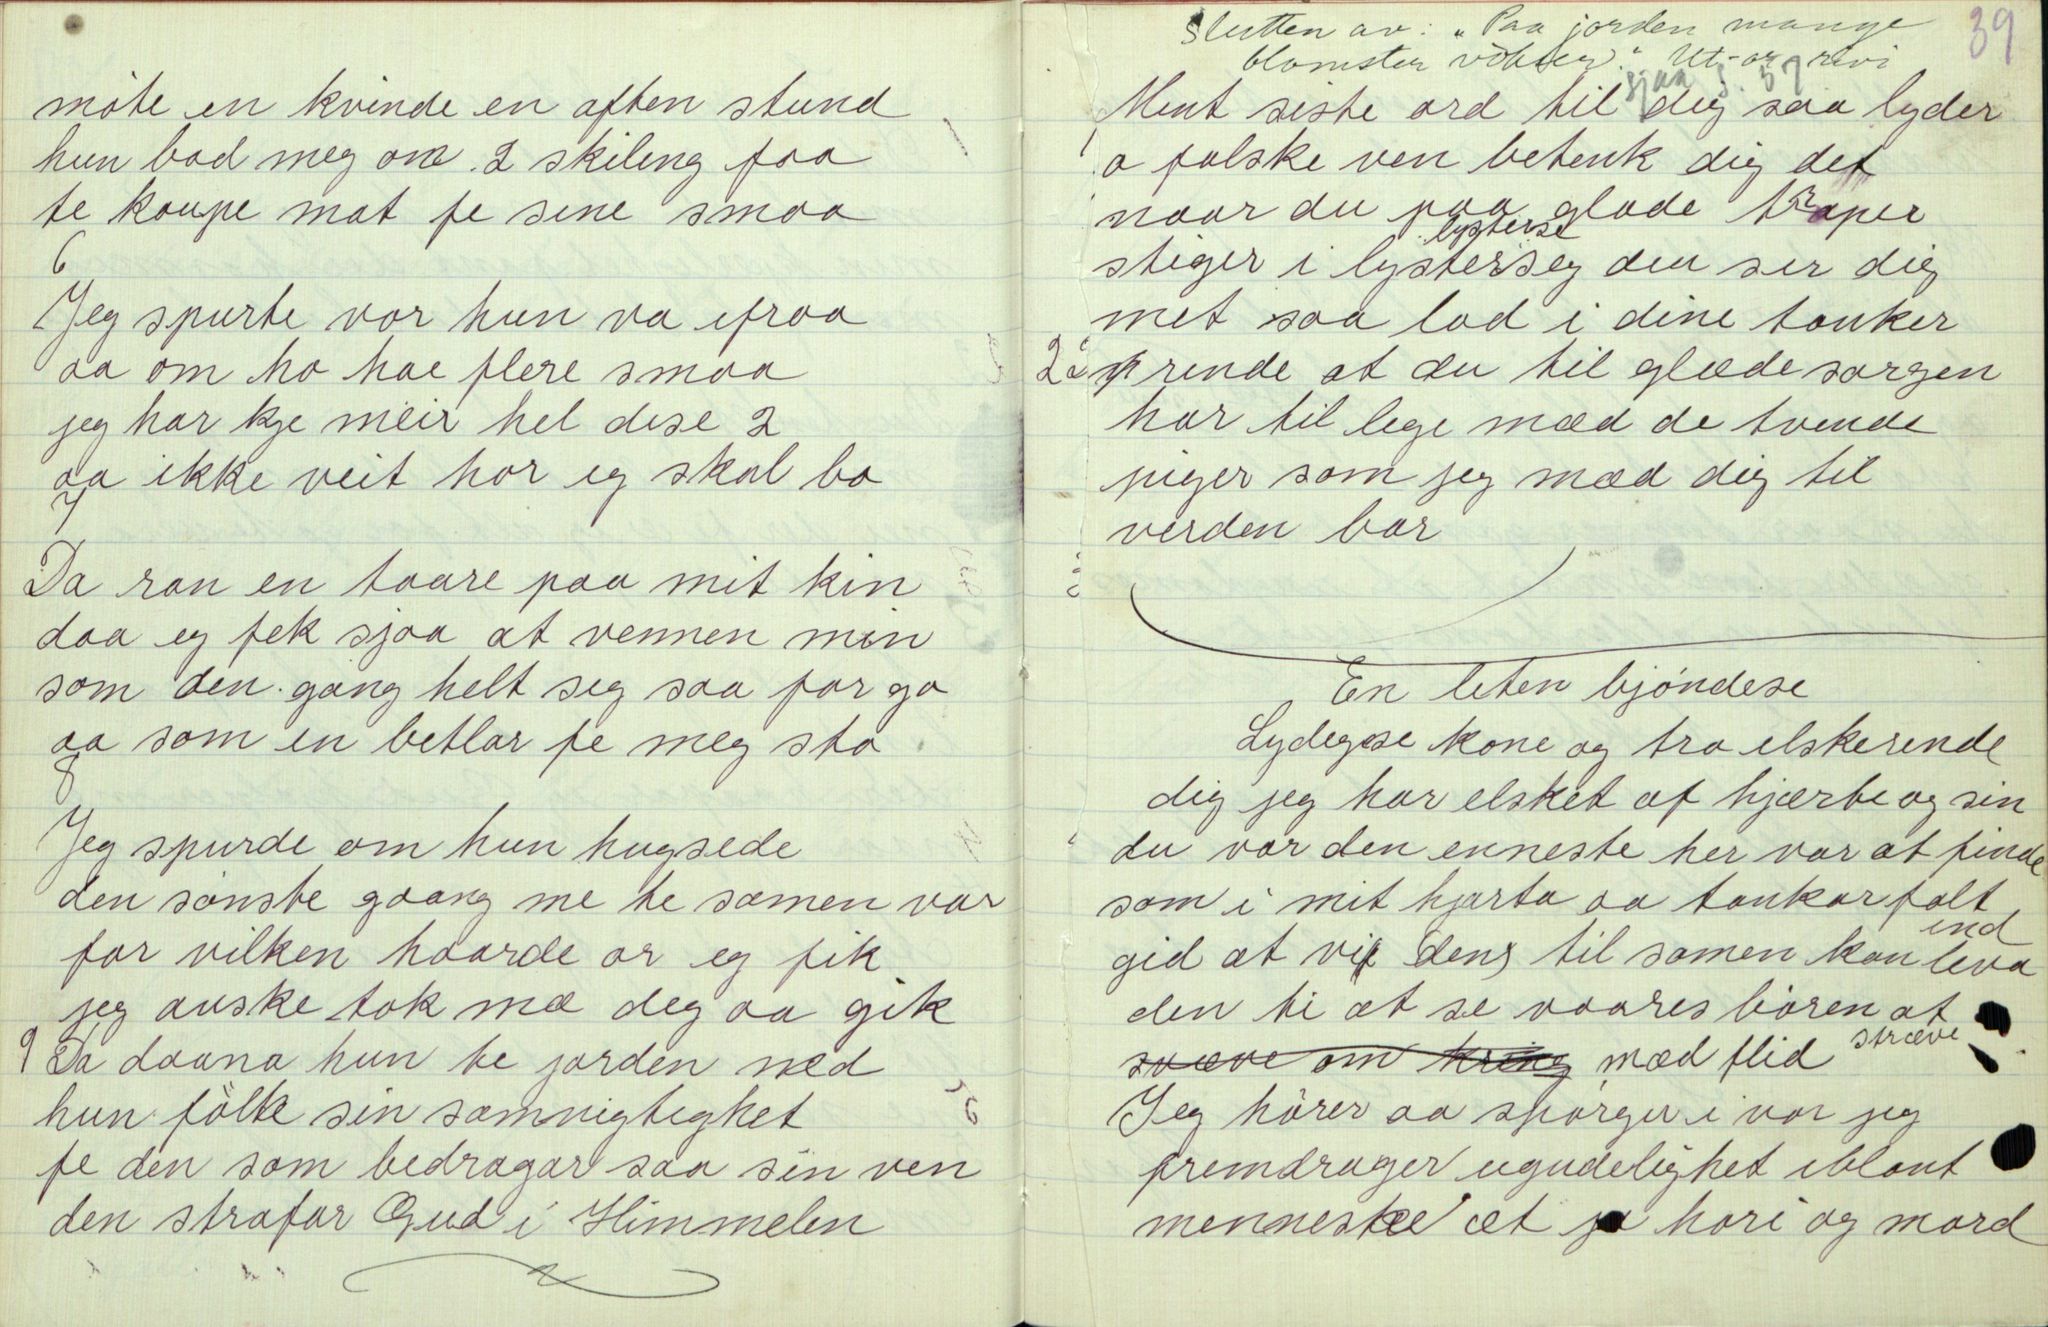 möte en kvinde en aften stund
hun bad meg om 2 skileng faa
te kaupe mat fe sine smaa
6
Jeg spurte vor hun va ifraa
aa om ho hae flere smaa
jeg har kje meir hel dese 2
aa ikke veit hor eg skal bo
7
Da ran en taare paa mit kin
daa eg fek sjaa at vennen min
som den gang helt seg saa for go
aa som en betlar fe meg sto
8
Jeg spurde om hun hugsede
den sönste gaang me te samen var
for vilken haarde or eg fik
jeg anske tok mæ deg aa gik
9 Da daana hun te jorden ned
hun fölte sin samnigtegket
fe den som bedragar saa sin ven
den strafar Gud i Himmelen
39
Slutten av: "Paa jorden mange
blomster vökser." Ut-or rivi
sjaa s. 37
Ment siste ord til dig saa lyder
o falske ven betenk dig det
naar du paa glade traper
lysterse
stiger i lysterseg den ser dig
met saa lad i dine tanker
2 prende at du til glæde sorgen
har til lege mæd de tvende
piger som jeg mæd dig til
verden bar
En liten bjöndese
Lydegse kone og tro elskerende
dig jeg har elsket af hjærte og sin
du var den enneste her var at finde
som i mit hjarta aa tankar falt
ind
gid at vi den til samen kan leva
den ti at se vaares bören at
svæve om kring mæd flid stræve
Jeg hörer aa spörger i vor jeg
fremdrager ugudelighet iblant
menneskee at ja hori og mord